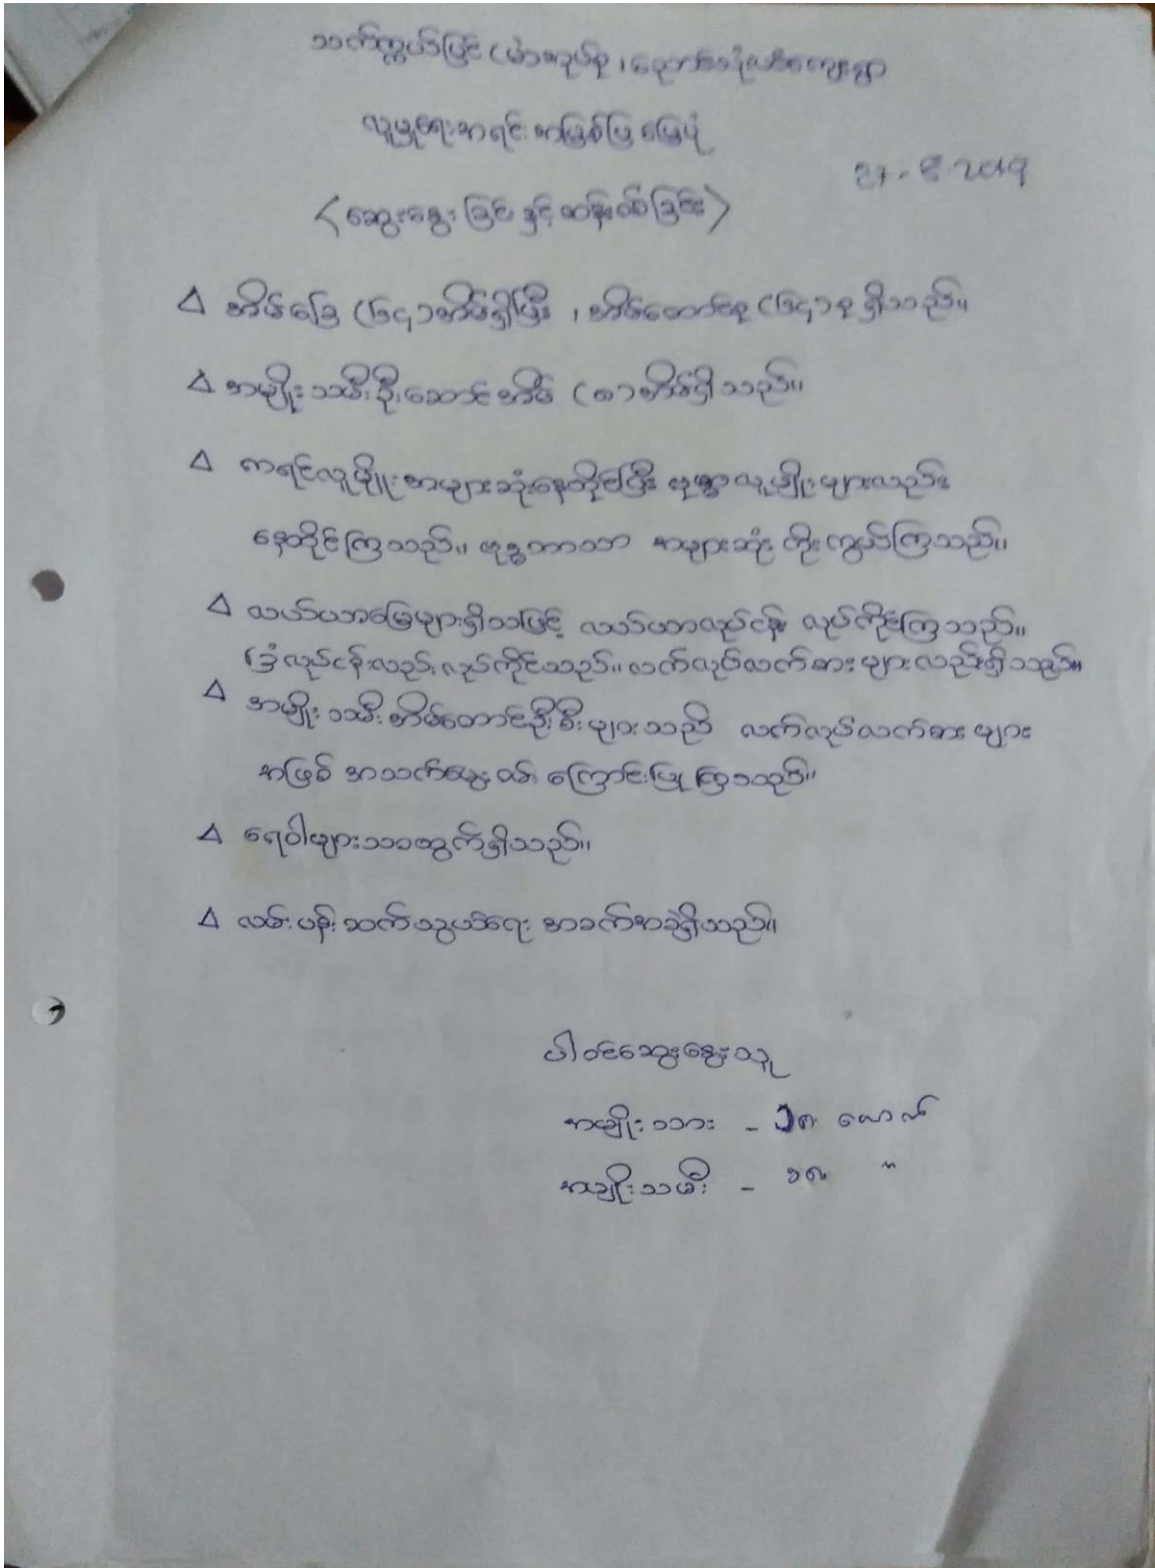 သက်ကွယ်ပြင် ( ၊ ကျေးရွာ
လူမှုရေးစာရင်း အဖြစ်ပြ မြေပုံ
<ဆွေးနွေးခြင်း နှင့် ဆန်းစစ်ခြင်း>
△ အိမ်ခြေ (၆၄) အိမ်ရှိပြီး ၊ အိမ်ထောင်စု (၆၄) စု ရှိသည်။
△ အမျိုးသမီးဦးဆောင်အိမ် (၈) အိမ်ရှိသည်။
△ ကရင်လူမျိုး အများဆုံးနေထိုင်ပြီး ဗမာလူမျိုးများလည်း
နေထိုင်ကြသည်။ ဗုဒ္ဓဘာသာ အများဆုံး ကိုးကွယ်ကြသည်။
△ လယ်ယာမြေများရှိသဖြင့် လယ်ယာလုပ်ငန်း လုပ်ကိုင်ကြသည်။
ခြံလုပ်ငန်းလည်း လုပ်ကိုင်သည်။ လက်လုပ်လက်စားများလည်းရှိသည်။
△ အမျိုးသမီးအိမ်ထောင်ဦးစီးများသည် လက်လုပ်လက်စားများ
အဖြစ် အသက်မွေးဝမ်းကြောင်းပြုကြသည်။
△ ရေဝါများသာထွက်ရှိသည်။
△ လမ်းပန်းဆက်သွယ်ရေး အခက်အခဲရှိသည်။
ပါဝင်ဆွေးနွေးသူ
အမျိုးသား - ၁၈ ယောက်
အမျိုးသမီး - ၁၈ "